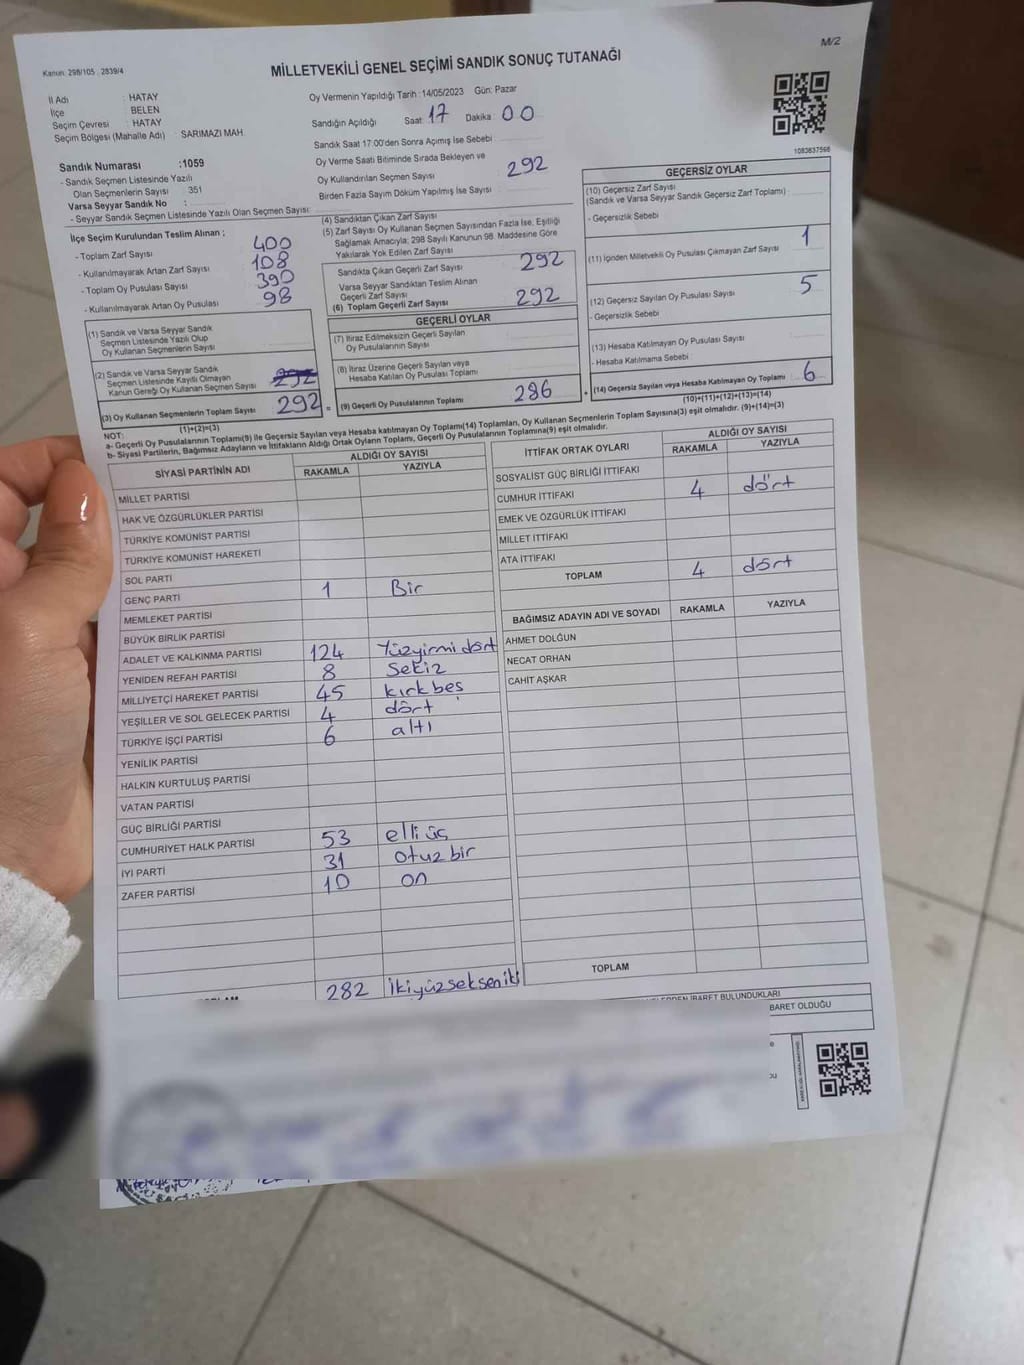 M/2
Kanun: 298/105 , 2839/4
MİLLETVEKİLİ GENEL SEÇİMİ SANDIK SONUÇ TUTANAĞI
İl Adı : HATAY
İlçe : BELEN
Seçim Çevresi : HATAY
Seçim Bölgesi (Mahalle Adı) : SARIMAZI MAH.
Oy Vermenin Yapıldığı Tarih : 14/05/2023 Gün: Pazar
Sandığın Açıldığı Saat: 17 Dakika: 00
Sandık Saat 17:00'den Sonra Açılmış İse Sebebi :
Oy Verme Saati Bitiminde Sırada Bekleyen ve
Oy Kullandırılan Seçmen Sayısı : 292
Birden Fazla Sayım Döküm Yapılmış İse Sayısı :
1083837596
Sandık Numarası :1059
- Sandık Seçmen Listesinde Yazılı
Olan Seçmenlerin Sayısı : 351
Varsa Seyyar Sandık No :
- Seyyar Sandık Seçmen Listesinde Yazılı Olan Seçmen Sayısı:
İlçe Seçim Kurulundan Teslim Alınan ;
- Toplam Zarf Sayısı 400
- Kullanılmayarak Artan Zarf Sayısı 108
- Toplam Oy Pusulası Sayısı 390
- Kullanılmayarak Artan Oy Pusulası 98
(1) Sandık ve Varsa Seyyar Sandık
Seçmen Listesinde Yazılı Olup
Oy Kullanan Seçmenlerin Sayısı
(2) Sandık ve Varsa Seyyar Sandık
Seçmen Listesinde Kayıtlı Olmayan
Kanun Gereği Oy Kullanan Seçmen Sayısı 292
(3) Oy Kullanan Seçmenlerin Toplam Sayısı 292
(1)+(2)=(3)
(4) Sandıktan Çıkan Zarf Sayısı
(5) Zarf Sayısı Oy Kullanan Seçmen Sayısından Fazla İse, Eşitliği
Sağlamak Amacıyla; 298 Sayılı Kanunun 98. Maddesine Göre
Yakılarak Yok Edilen Zarf Sayısı
Sandıkta Çıkan Geçerli Zarf Sayısı 292
Varsa Seyyar Sandıktan Teslim Alınan
Geçerli Zarf Sayısı
(6) Toplam Geçerli Zarf Sayısı 292
GEÇERLİ OYLAR
(7) İtiraz Edilmeksizin Geçerli Sayılan
Oy Pusulalarının Sayısı
(8) İtiraz Üzerine Geçerli Sayılan veya
Hesaba Katılan Oy Pusulası Toplamı
= (9) Geçerli Oy Pusulalarının Toplamı 286
GEÇERSİZ OYLAR
(10) Geçersiz Zarf Sayısı
(Sandık ve Varsa Seyyar Sandık Geçersiz Zarf Toplamı)
- Geçersizlik Sebebi
(11) İçinden Milletvekili Oy Pusulası Çıkmayan Zarf Sayısı 1
(12) Geçersiz Sayılan Oy Pusulası Sayısı 5
- Geçersizlik Sebebi
(13) Hesaba Katılmayan Oy Pusulası Sayısı
- Hesaba Katılmama Sebebi
+ (14) Geçersiz Sayılan veya Hesaba Katılmayan Oy Toplamı 6
(10)+(11)+(12)+(13)=(14)
NOT:
a- Geçerli Oy Pusulalarının Toplamı(9) ile Geçersiz Sayılan veya Hesaba katılmayan Oy Toplamı(14) Toplamları, Oy Kullanan Seçmenlerin Toplam Sayısına(3) eşit olmalıdır. (9)+(14)=(3)
b- Siyasi Partilerin, Bağımsız Adayların ve İttifakların Aldığı Ortak Oyların Toplamı, Geçerli Oy Pusulalarının Toplamına(9) eşit olmalıdır.
SİYASİ PARTİNİN ADI ALDIĞI OY SAYISI
RAKAMLA YAZIYLA
MİLLET PARTİSİ
HAK VE ÖZGÜRLÜKLER PARTİSİ
TÜRKİYE KOMÜNİST PARTİSİ
TÜRKİYE KOMÜNİST HAREKETİ
SOL PARTİ
GENÇ PARTİ 1 Bir
MEMLEKET PARTİSİ
BÜYÜK BİRLİK PARTİSİ
ADALET VE KALKINMA PARTİSİ 124 Yüzyirmi dört
YENİDEN REFAH PARTİSİ 8 Sekiz
MİLLİYETÇİ HAREKET PARTİSİ 45 kırkbeş
YEŞİLLER VE SOL GELECEK PARTİSİ 4 dört
TÜRKİYE İŞÇİ PARTİSİ 6 altı
YENİLİK PARTİSİ
HALKIN KURTULUŞ PARTİSİ
VATAN PARTİSİ
GÜÇ BİRLİĞİ PARTİSİ
CUMHURİYET HALK PARTİSİ 53 elli üç
İYİ PARTİ 31 otuz bir
ZAFER PARTİSİ 10 on
282 İkiyüzseksen iki
İTTİFAK ORTAK OYLARI ALDIĞI OY SAYISI
RAKAMLA YAZIYLA
SOSYALİST GÜÇ BİRLİĞİ İTTİFAKI
CUMHUR İTTİFAKI 4 dört
EMEK VE ÖZGÜRLÜK İTTİFAKI
MİLLET İTTİFAKI
ATA İTTİFAKI
TOPLAM 4 dört
BAĞIMSIZ ADAYIN ADI VE SOYADI RAKAMLA YAZIYLA
AHMET DOLĞUN
NECAT ORHAN
CAHİT AŞKAR
TOPLAM
İBARET BULUNDUKLARI
BARET OLDUĞU